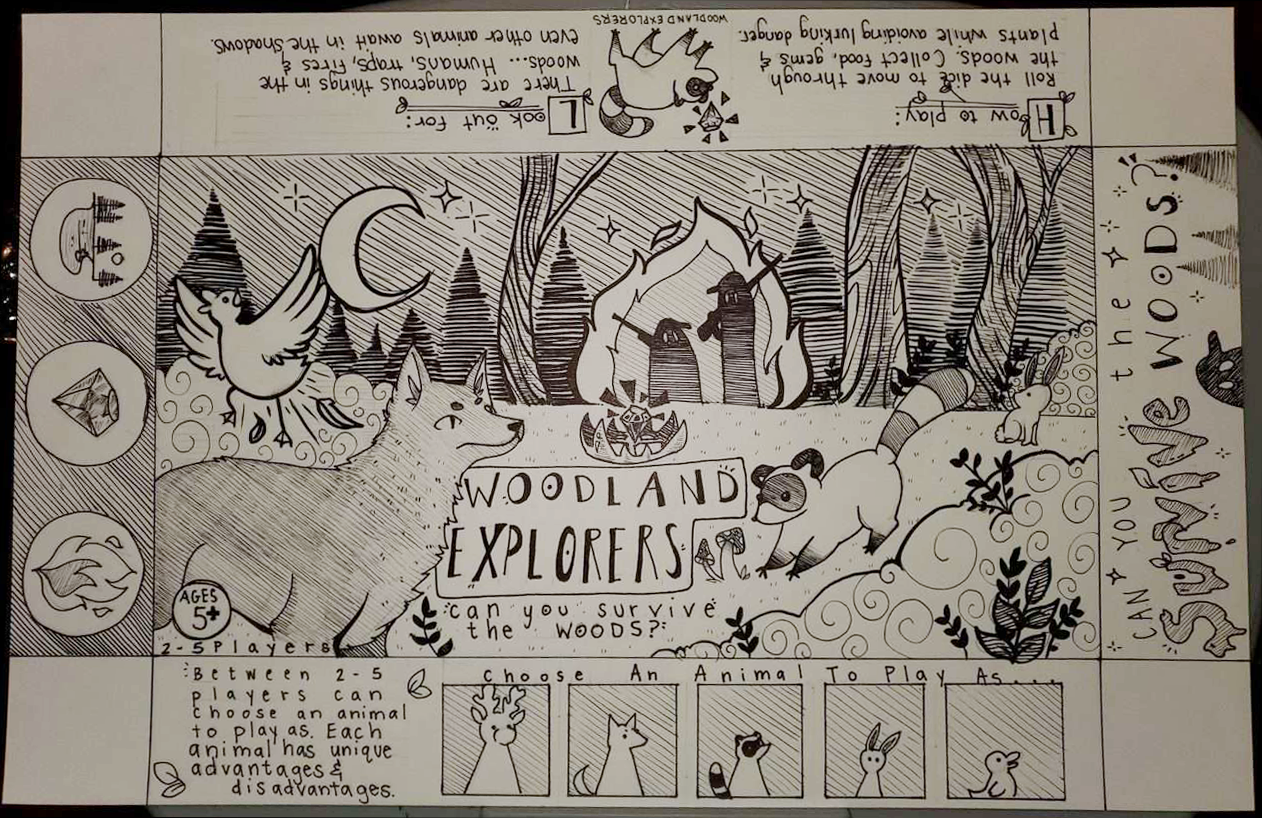 How to play:
Roll the dice to move through
the woods. Collect food, gems &
plants while avoiding lurking danger.
WOODLAND EXPLORERS
Look out for:
There are dangerous things in the
woods... Humans, traps, Fires &
even other animals await in the shadows.
WOODLAND
EXPLORERS
can you survive
the WOODS?
AGES
5+
2-5 Players
CAN YOU the
Survive WOODS?
Between 2-5
players can
choose an animal
to play as. Each
animal has unique
advantages &
disadvantages.
Choose An Animal To Play As...